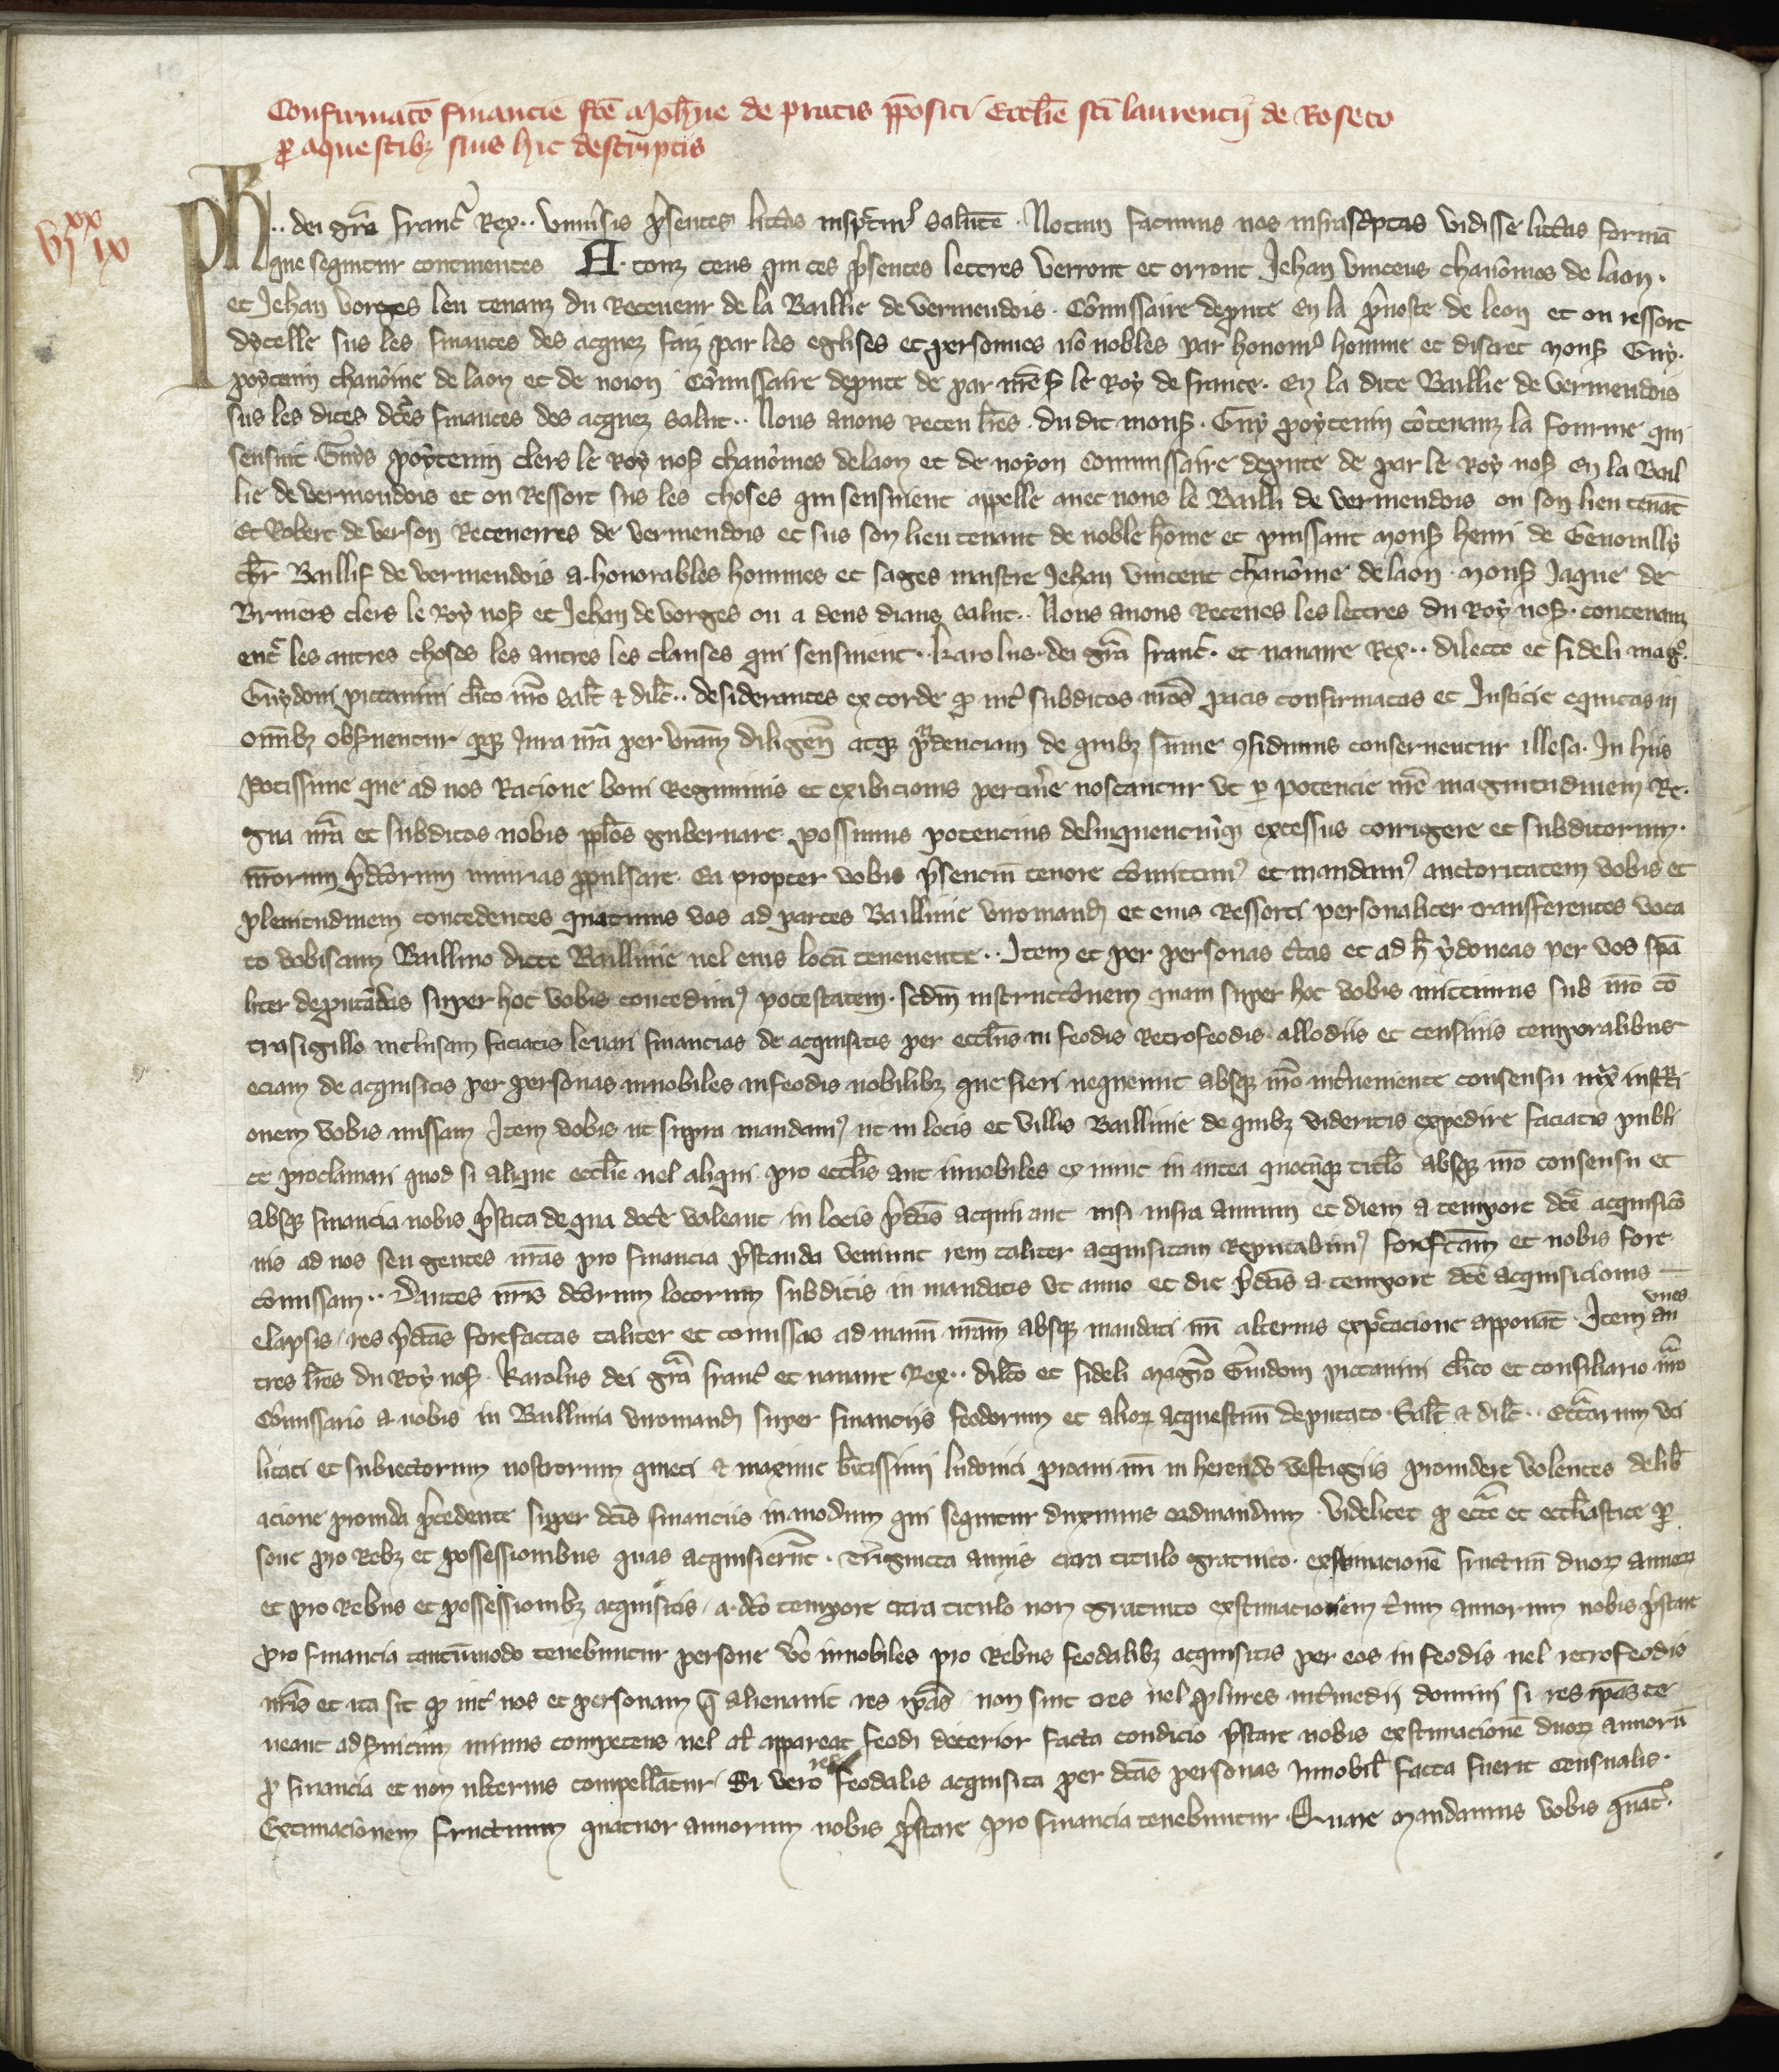 Confirmato financie fce Johne de pratis ppositi Ecclie sci laurencij de Roseto
p aquestibz suis hic descriptis
vj xx ix
Ph .. dei gra franc Rex .. Univsis psentes littas inspctur salute . Notum facimus nos infrascptas vidisse littas forma
que sequitur continentes A . touz ceus qui ces psentes lettres verront et orront Jehan vincens chanoines de laon .
et Jehan vorges leu tenanz du Receveur de la Baillie de vermendois . Comissaire depute en la pvoste de leon et ou ressort
dycelle sus les finances des acquez faiz par les eglises et personnes no nobles par honour homme et discret mons Guy .
poytevin chanoine de laon et de noion Comissaire depute de par mes le Roy de france . En la dite Baillie de vermendois
sus les dites dces finances des acquez salut .. Nous avons receu lres . du dit mons . Guy poytevin cotenanz la fourme qui
sensuit . Guys poytevin clers le Roy nos chanoines de laon et de noyon Comissaire depute de par le Roy nos En la Bail
lie de vermondois et ou Ressort sus les choses qui sensivent appelle avec nous le Bailli de vermendois ou son lieu tenat
Et Robert de verson Recevrres de vermendois et sus son lieu tenant de noble home et puissant mons henri de Genouilly
chr Baillif de vermendois a . honorables hommes et sages maistre Jehan vincent chanoine de laon . mons Jaque de
Bruiers clers le Roy nos et Jehan de vorges ou a deus diaus salut .. Nous avons Receues les lettres du Roy nos . contenanz
entr les autres choses les autres les clauses qui sensivent . karolus . dei gra franc . et navarre Rex .. dilecto et fideli magr .
Guydoni pictavini clico nro salt & dilc .. Desiderantes ex corde q int subditos nros pacis confirmatas et Justicie equitas in
omibz obsventur qz Jura nra per vram diligen atqz prdenciam de quibz sume 9fidimus conserventur illesa . In hiis
Potissime que ad nos Racione boni Regiminis et exibicionis pertinere noscantur ut p potencie nre magnitudinem Re .
gna nra et subditos nobis pplos gubernare possimus potencius delinquenciuqz excessus corrigere et subditorum .
nrorum pdcorum iniurias ppulsare . Ea propter vobis psencium tenore comittim9 et mandam9 auctoritatem vobis et
plenitudinem concedentes quatinus vos ad partes Baillivie viromand et eius Ressorti personaliter transferentes voca
to vobiscum Baillivo dicte Baillivie vel eius locu tenenente .. Item et per personas ctas et ad h ydoneas per vos spa
liter deputadas super hoc vobis concedim9 potestatem . scdm instructionem quam super hoc vobis mittimus sub nro co
trasigillo inclusam faciatis levari financias de acquisitis per ecclias in feodis Retrofeodis . allodiis et censivis temporalibus
eciam de acquisitis per personas innobiles in feodis nobilibz que fieri nequeunt absqz nro intveniente consensu iux instcti
onem vobis missam Item vobis ut supra mandam9 ut in locis et villis Baillivie de quibz videritis expedire faciatis publi
ce proclamari quod si alique ecclie vel aliqui pro ecclis aut innobiles ex nunc in antea quocuqz titlo absqz nro consensu et
absqz financia nobis pstita de qua doce valeant in locis pdcis acquirant nisi infra annum et diem a tempore dce acquisicio
nis ad nos seu gentes nras pro financia pstanda veniunt rem taliter acquisitam Reputabim9 forefctam et nobis fore
comissam .. Dantes nris dcorum locorum subditis in mandatis ut anno et die pdcis a . tempore dce acquisicionis
elapsis . res pdcas forefactas taliter et comissas ad manu nram absqz mandati nri alterius expctacione apponat . Item unes au
tres lres du Roy nos . Karolus dei gra franc et navarre Rex .. dilco et fideli magro Guidoni pictavini clico et consiliario nro
Comissario a . nobis in Baillivia viromand super financiis feodorum et alior acquestuu deputato . Salt & dilc .. Ecclarum uti
litati et subiectorum nostrorum quieti & maxime btissimi ludovici proavi nri in herendo vestigiis providere volentes delib
acione provida pcedente super dcis financiis in modum qui sequitur duximus ordinandum . Videlicet q eccle et ecclastice p
sone pro Rebz et possessionibus quas acquisierunt . Triginta annis citra titulo gratuito . exstimacione fructuu duor annor
et pro Rebus et possessionibz acquisitis . a . dco tempore citra titulo non gratuito exstimacionem trium annorum nobis pstare
Pro financia tantumodo tenebuntur persone vo innobiles pro Rebus feodalibz acquisitis per eos in feodis vel retrofeodis
nris et ita sit q int nos et personam q alienavit res ipas . non sint tres vel plures intmedii domini si res ipas te
neant ad svitium minus competens vel al appareat feodi deterior facta condicio pstare nobis exstimacione duor annoru
p financia et non ulterius compellatur . Si vero res feodalis acquisita per dcas personas Innobil facta fuerit censualis .
Extimacionem fructuum quatuor annorum nobis pstare pro financia tenebuntur . Quare mandamus vobis quat .